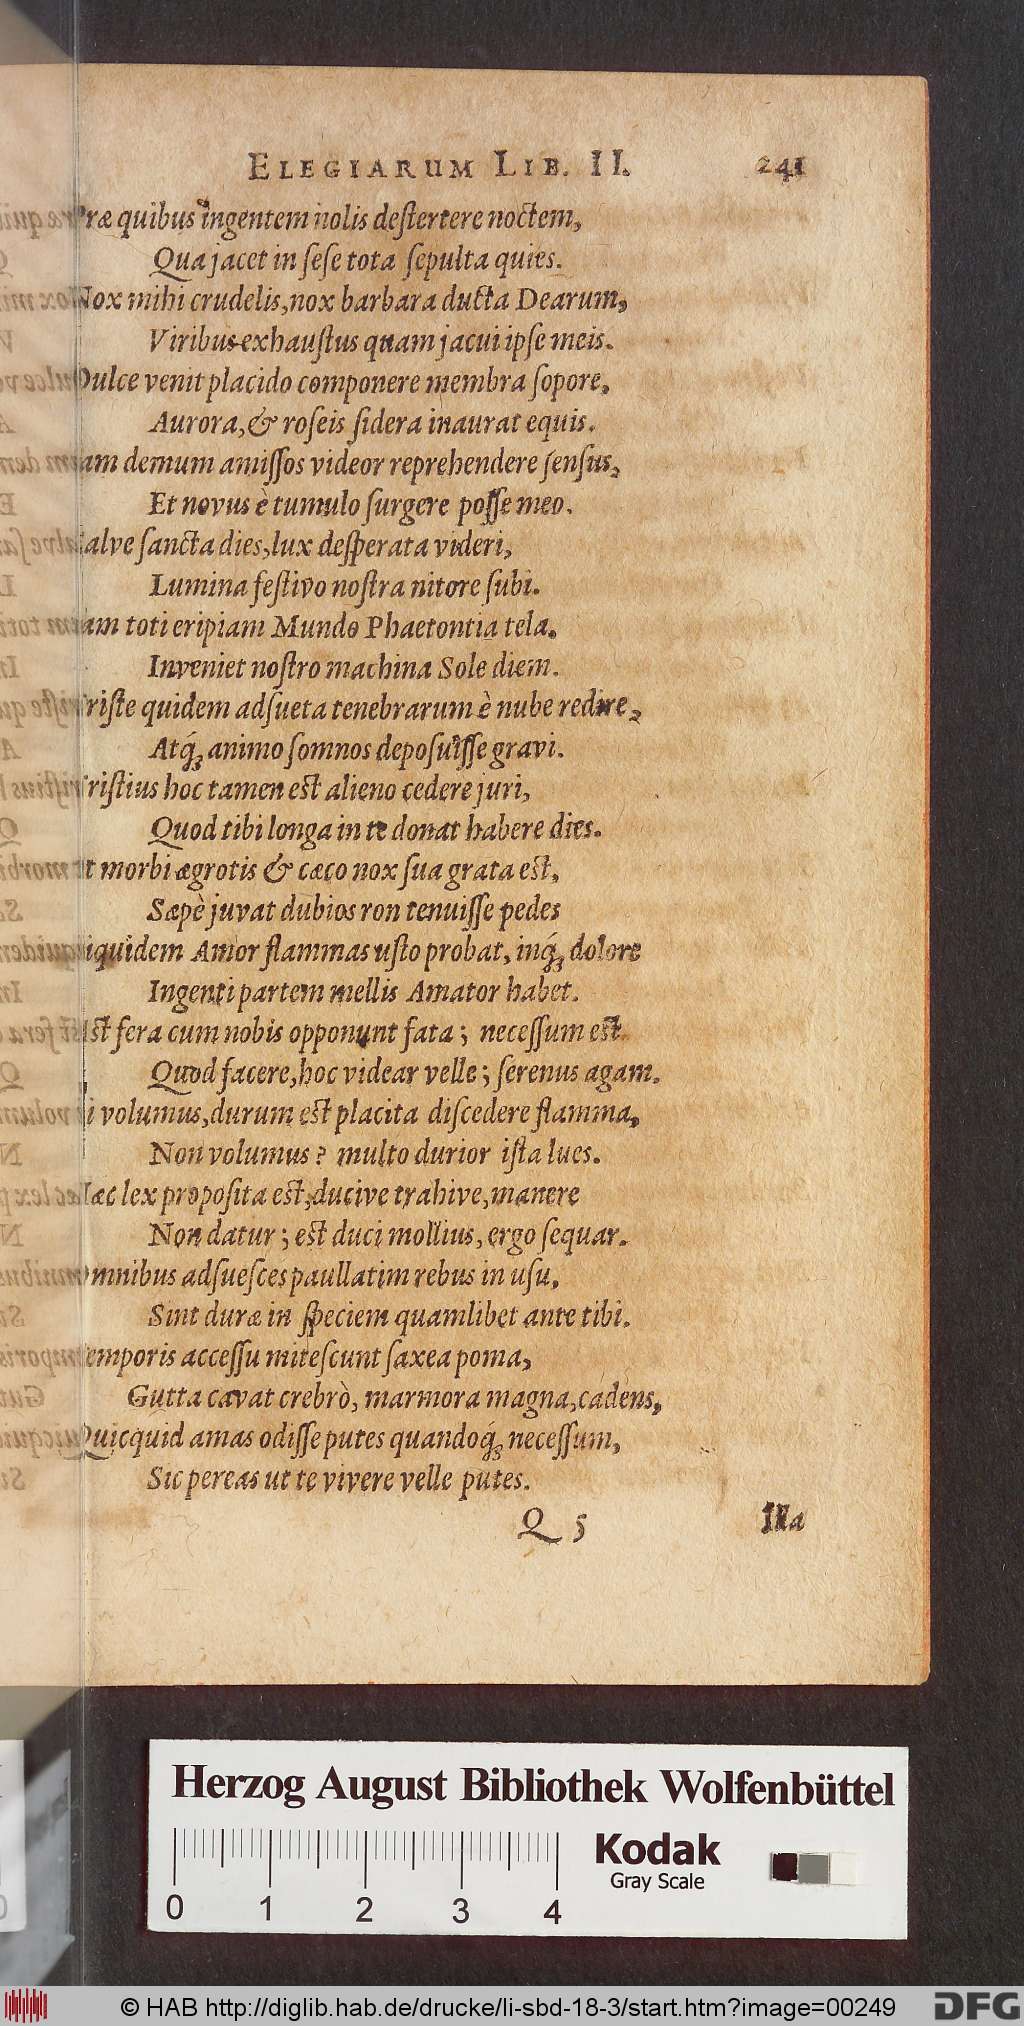 ELEGIARUM LIB. II. 241
Præ quibus ingentem nolis destertere noctem,
Qua jacet in sese tota sepulta quies.
Nox mihi crudelis, nox barbara ducta Dearum,
Viribus exhaustus quam jacui ipse meis.
Dulce venit placido componere membra sopore,
Aurora, & roseis sidera inaurat equis.
Jam demum amissos videor reprehendere sensus,
Et novus è tumulo surgere posse meo.
Salve sancta dies, lux desperata videri,
Lumina festivo nostra nitore subi.
Jam toti eripiam Mundo Phaetontia tela.
Inveniet nostro machina Sole diem.
Triste quidem adsueta tenebrarum è nube redire,
Atq́; animo somnos deposuisse gravi.
Tristius hoc tamen est alieno cedere juri,
Quod tibi longa in te donat habere dies.
Ut morbi ægrotis & cæco nox sua grata est,
Sæpè juvat dubios ron tenuisse pedes
Siquidem Amor flammas usto probat, inq́; dolore
Ingenti partem mellis Amator habet.
Est fera cum nobis opponunt fata; necessum est
Quod facere, hoc videar velle; serenus agam.
Si volumus, durum est placita discedere flamma,
Non volumus? multo durior ista lues.
Hæc lex proposita est, ducive trahive, manere
Non datur; est duci mollius, ergo sequar.
Omnibus adsuesces paullatim rebus in usu,
Sint duræ in speciem quamlibet ante tibi.
Temporis accessu mitescunt saxea poma,
Gutta cavat crebrò, marmora magna, cadens,
Quicquid amas odisse putes quandoq́; necessum,
Sic pereas ut te vivere velle putes.
Q 5 Illa
Herzog August Bibliothek Wolfenbüttel
0 1 2 3 4
Kodak
Gray Scale
© HAB http://diglib.hab.de/drucke/li-sbd-18-3/start.htm?image=00249
DFG